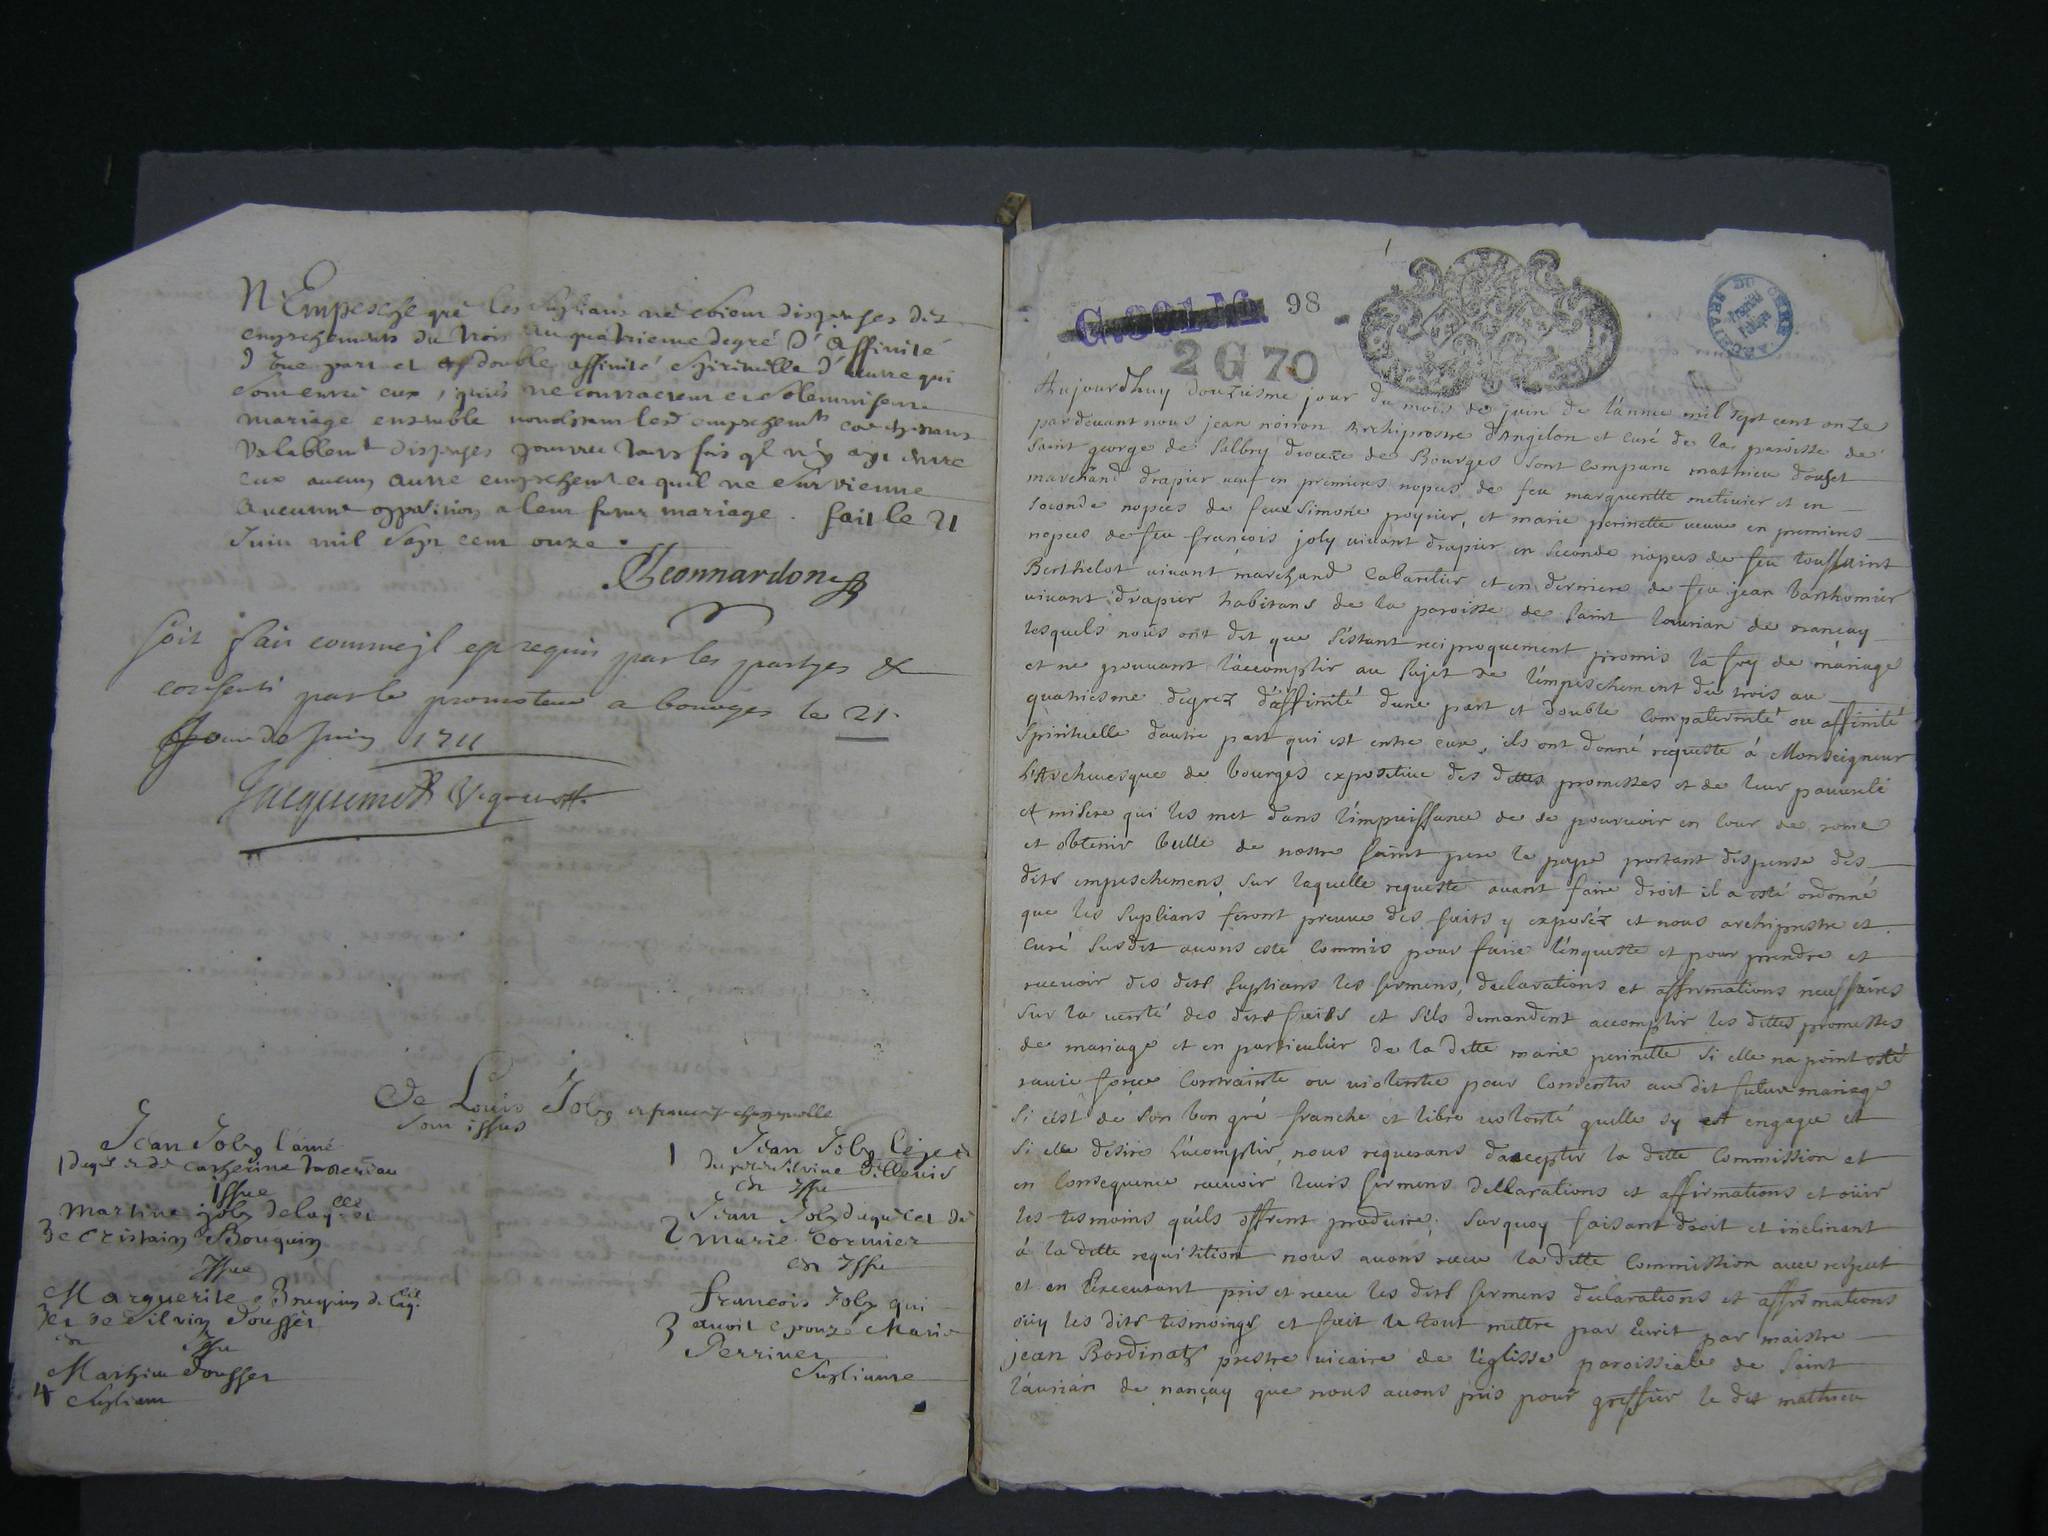 N'Empesche que les supliants ne soient dispenses des
empeschements du trois au quatrieme degré d'affinité
d'une part et de double affinité spirituelle d'autre qui
sont entre eux, qu'ils ne contractent et solemnisent
mariage ensemble nonobstant lesd empeschemts
valablemt dispenses pourveu toutesfois ql n'y aye entre
eux aucun autre empeschemt et quil ne survienne
aucunne opposition a leur futur mariage. fait le 21
Juin mil sept cent onze.
Leonnardon
soit fait comme jl est requis par les partyes &
consenti par le promoteur a bourges le 21.
jour de Juin 1711
De Louis Joly et francoise
sont issus
Jean Joly l'ainé
1 degré et de Catherine
issue
Martine joly
3 et Cristain Bouquin
Issue
Marguerite Bouquin
3 et de Silvin Dousset
en Issu
Mathieu Dousset
4 supliant
1 Jean Joly le jeune
Silvine
en Issu
Jean Joly
2 Marie Cormier
en Issu
francois Joly qui
3 avoit epouzé Marie
Perrinet
Supliante
98
2 G 70
ARCHIVES DU CHER
Aujourdhuy douziesme jour du mois de juin de l'année mil sept cent onze
pardevant nous jean noiron Archiprestre d'Angilon et curé de la paroisse de
saint george de Salbry diocese de Bourges sont comparu mathieu douset
marchand drapier veuf en premieres nopces de feu margueritte metivier et en
seconde nopces de feue Simone poynier, et marie perinette veuve en premieres
nopces de feu françois joly vivant drapier en seconde nopces de feu toussaint
Berthelot vivant marchand Cabaretier et en derniere de feu jean barthomier
vivant drapier habitans de la paroisse de saint laurian de nançay
lesquels nous ont dit que s'estant reciproquement promis la foy de mariage
et ne pouvant l'accomplir au sujet de l'empeschement du trois au
quatriesme degrez d'affinité dune part et double compaternité ou affinité
spirituelle d'autre part qui est entre eux, ils ont donné requeste à Monseigneur
l'Archevesque de bourges expositive des dittes promesses et de leur pauvreté
et misere qui les met dans l'impuissance de se pourvoir en cour de rome
et obtenir bulle de nostre saint pere le pape portant dispense des
dits empeschemens, sur laquelle requeste avant faire droit il a esté ordonné
que les suplians feront preuve des faits y exposéz et nous archiprestre et
curé susdit avons esté commis pour faire l'enqueste et pour prendre et
recevoir des dits suplians les sermens, declarations et affirmations necessaires
sur la verité des dits faits et s'ils demandent accomplir les dittes promesses
de mariage et en particulier de la ditte marie perinette si elle na point esté
ravie forcée contrainte ou violentée pour consentir au dit futur mariage
si c'est de son bon gré franche et libre volonté quelle sy est engagée et
si elle desire l'acomplir, nous requerans d'accepter la ditte commission et
en consequence recevoir leurs sermens declarations et affirmations et oüir
les tesmoins qu'ils offrent produire; surquoy faisant droit et inclinant
à la ditte requisition nous avons receu la ditte commission avec respect
et en l'executant pris et receu les dits sermens declarations et affirmations
oüy les dits tesmoings et fait le tout mettre par écrit par maistre
jean Bordinat prestre vicaire de l'eglisse paroissiale de saint
laurian de nançay que nous avons pris pour greffier le dit mathieu